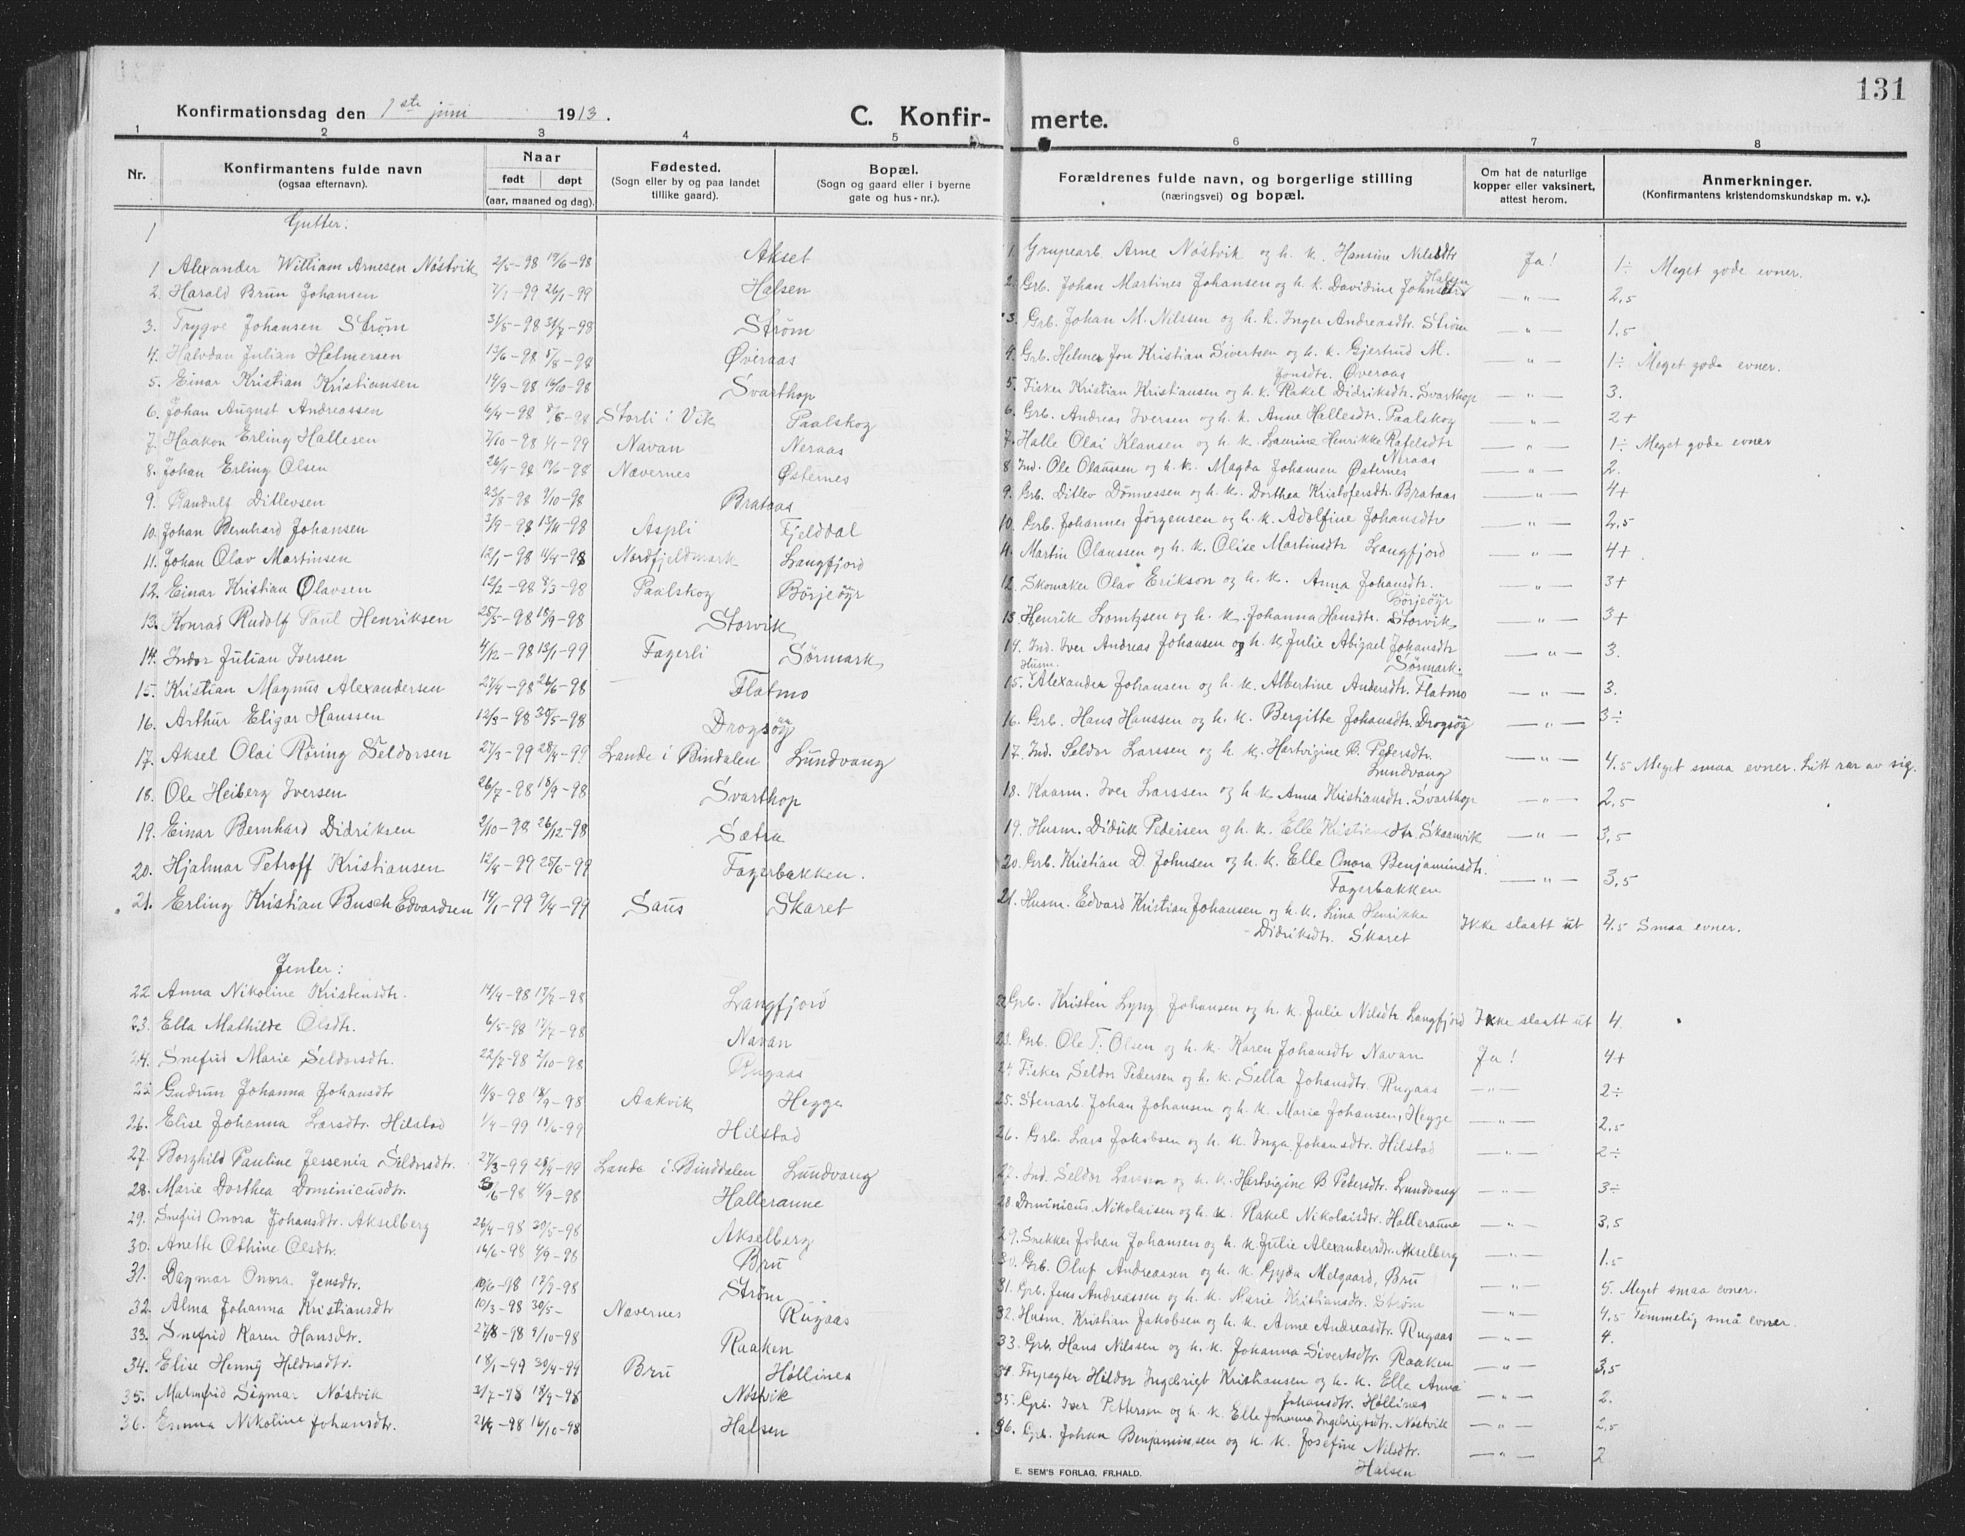 131
Konfirmationsdag den 1ste juni 1913. C. Konfir- merte.
1 2 3 4 5 6 7 8
Nr. Konfirmantens fulde navn (ogsaa efternavn). Naar født døpt (aar, maaned og dag). Fødested. (Sogn eller by og paa landet tillike gaard). Bopæl. (Sogn og gaard eller i byerne gate og hus-nr.). Forældrenes fulde navn, og borgerlige stilling (næringsvei) og bopæl. Om hat de naturlige kopper eller vaksinert, attest herom. Anmerkninger. (Konfirmantens kristendomskundskap m. v.).
Gutter:
1 Alexander William Arnesen Nøstvik 2/5-98 19/6-98 Akset 1. Grupearb. Arne Nøstvik og h. k. Hansine Nilsdtr Ja! 1÷ Meget gode evner.
2. Harald Brun Johansen 7/1-99 26/1-99 Halsen 2. Grb. Johan Martines Johansen og h. k. Davidine Johnsdtr Halsen —"— 2,5
3. Trygve Johansen Strøm 31/5-98 31/7-98 Strøm 3. Grb. Johan M. Nilsen og h. k. Inger Andreasdtr. Strøm —"— 1.5
4. Halvdan Julian Helmersen 13/6-98 /8-98 Øveraas 4. Grb. Helmer Jon Kristian Sivertsen og h. k. Gjertrud M. Jonsdtr. Øveraas —"— 1÷ Meget gode evner.
5. Einar Kristian Kristiansen 14/9-98 16/10-98 Svarthop 5. Fisker Kristian Kristiansen og h. k. Rakel Didriksdtr. Svarthop —"— 3.
6. Johan August Andreassen 6/4-98 /6-98 Storli i Vik Paalskog 6. Grb. Andreas Iversen og h. k. Anne Hallesdtr. Paalskog —"— 2+
7. Haakon Erling Hallesen 7/10-98 1/4-99 Navan Neraas 7. Halle Olai Klausen og h. k. Laurine Henrikke Rafelsdtr Neraas —"— 1÷ Meget gode evner
8. Johan Erling Olsen 26/4-98 19/6-98 Nævernes Østernes 8. Ind. Ole Olaussen og h. k. Magda Johansen Østernes —"— 2.
9. Randulf Ditlevsen 23/8-98 9/10-98 Brataas 9. Grb. Ditlev Dønnessen og h. k. Dorthea Kristofersdtr. Brataas —"— 4+
10. Johan Bernhard Johansen 3/9-98 13/11-98 Aspli Fjelddal 10. Grb. Johannes Jørgensen og h. k. Adolfine Johansdtr —"— 2,5
11. Johan Olav Martinsen 12/1-98 11/4-98 Nordfjeldmark Langfjord 11. Martin Olaussen og h. k. Olise Martinsdtr Langfjord —"— 4+
12. Einar Kristian Olavsen 12/2-98 8/3-98 Paalskog Børjeøyr 12. Skomaker Olav Erikson og h. k. Anna Johansdtr. Børjeøyr —"— 3+
13. Konrad Rudolf Paul Henriksen 25/5-98 18/9-98 Storvik 13. Henrik Lorntzsen og h. k. Johanna Hansdtr. Storvik —"— 3+
14. Indor Julian Iversen 4/12-98 13/1-99 Fagerli Sørmark 14. Ind. Iver Andreas Johansen og h. k. Julie Abigael Johansdtr Sørmark. —"— 3.
15. Kristian Magnus Alexandersen 27/4-98 26/6-98 Flatmo 15. Husm. Alexander Johansen og h. k. Albertine Andersdtr. Flatmo —"— 3.
16. Arthur Eligar Hanssen 12/3-98 30/5-98 Drogsøy 16. Grb. Hans Hanssen og h. k. Bergitte Johansdtr. Drogsøy —"— 3÷
17. Aksel Olai Røring Seldorsen 27/3-99 28/4-99 Lande i Bindalen Lundvang 17. Ind. Seldor Larssen og h. k. Hartvigine B. Pedersdtr. Lundvang —"— 4.5 Meget smaa evner. Litt rar av sig.
18. Ole Heiberg Iversen 26/7-98 18/9-98 Svarthop 18. Kaarm. Iver Larssen og h. k. Anna Kristiansdtr. Svarthop —"— 2,5
19. Einar Bernhard Didriksen 2/10-98 26/12-98 Sætra 19. Husm. Didrik Pedersen og h. k. Elle Kristiansdtr. Skaanvik —"— 3,5
20. Hjalmar Petroff Kristiansen 12/4-99 25/6-99 Fagerbakken. 20. Grb. Kristian D. Johnsen og h. k. Elle Onora Benjaminsdtr. Fagerbakken —"— 3,5
21. Erling Kristian Busch Edvardsen 14/1-99 9/4-99 Saus Skaret 21. Husm. Edvard Kristian Johansen og h. k. Lina Henrikke Didriksdtr. Skaret Ikke slaatt ut 4.5 Smaa evner.
Jenter:
22 Anna Nikoline Kristensdtr. 14/4-98 17/7-98 Langfjord 22. Grb. Kristen Lyng Johansen og h. k. Julie Nilsdtr Langfjord Ikke slaatt ut 4.
23. Ella Mathilde Olsdtr. 6/5-98 17/7-98 Navan 23. Grb. Ole T. Olsen og h. k. Karen Johansdtr Navan Ja! 4+
24. Snefrid Marie Seldorsdtr. 22/7-98 2/10-98 Rugaas 24. Fisker Seldor Pedersen og h. k. Sella Johansdtr. Rugaas —"— 2÷
25 Gudrun Johanna Johansdtr 4/8-98 18/9-98 Aakvik Hegge 25. Stenarb. Johan Johansen og h. k. Marie Johansen, Hegge —"— 2.5
26. Elise Johanna Larsdtr. Hilstad 1/4-99 18/6-99 Hilstad 26. Grb. Lars Jakobsen og h. k. Inga Johansdtr. Hilstad —"— 2÷
27. Borghild Pauline Jessenia Seldorsdtr. 27/3-99 28/4-99 Lande i Binddalen Lundvang 27. Ind. Seldor Larssen og h. k. Hartvigine B Pedersdtr. Lundvang —"— 3÷
28. Marie Dorthea Dominicusdtr. /6-98 4/9-98 Halleraune 28. Dominicus Nikolaisen og h. k. Rakel Nikolaisdtr. Halleraune —"— 3,5
29. Snefrid Onora Johansdtr. Akselberg 26/4-98 30/5-98 Akselberg 29. Snekker Johan Johansen og h. k. Julie Alexandersdtr. Akselberg —"— 1.5
30. Anette Othine Olsdtr. 16/6-98 4/9-98 Bru 30. Grb. Oluf Andreassen og h. k. Gyda Melgaard, Bru —"— 5. Meget smaa evner.
31. Dagmar Onora Jensdtr. 10/6-98 17/7-98 Strøm 31. Grb. Jens Andreassen og h. k. Marie Kristiansdtr. Strøm —"— 4,5 Temmelig små evner.
32. Alma Johanna Kristiansdtr 10/3-98 30/5- Navernes Rugaas 32. Husm. Kristian Jakobsen og h. k. Anne Andreasdtr. Rugaas —"— 4.
33. Snefrid Karen Hansdtr. 27/8-98 9/10-98 Raaken 33. Grb. Hans Nilssen og h. k. Johanna Sivertsdtr. Raaken —"— 3,5
34. Elise Henny Hildorsdtr. 18/1-99 30/4-99 Bru Høllines 34. Forpagter Hildor Ingebrigt Kristiansen og h. k. Ella Anna Johansdtr. Høllines —"— 2.
35. Malmfrid Sigmar Nøstvik 31/7-98 18/9-98 Nøstvik 35. Grb. Iver Pettersen og h. k. Elle Johanna Ingebrigtsdtr. Nøstvik —"— 2,5
36. Emma Nikoline Johansdtr. 21/9-98 16/10-98 Halsen 36. Grb. Johan Benjaminsen og h. k. Josefine Nilsdtr. Halsen —"— 2
E. SEM'S FORLAG, FR.HALD.